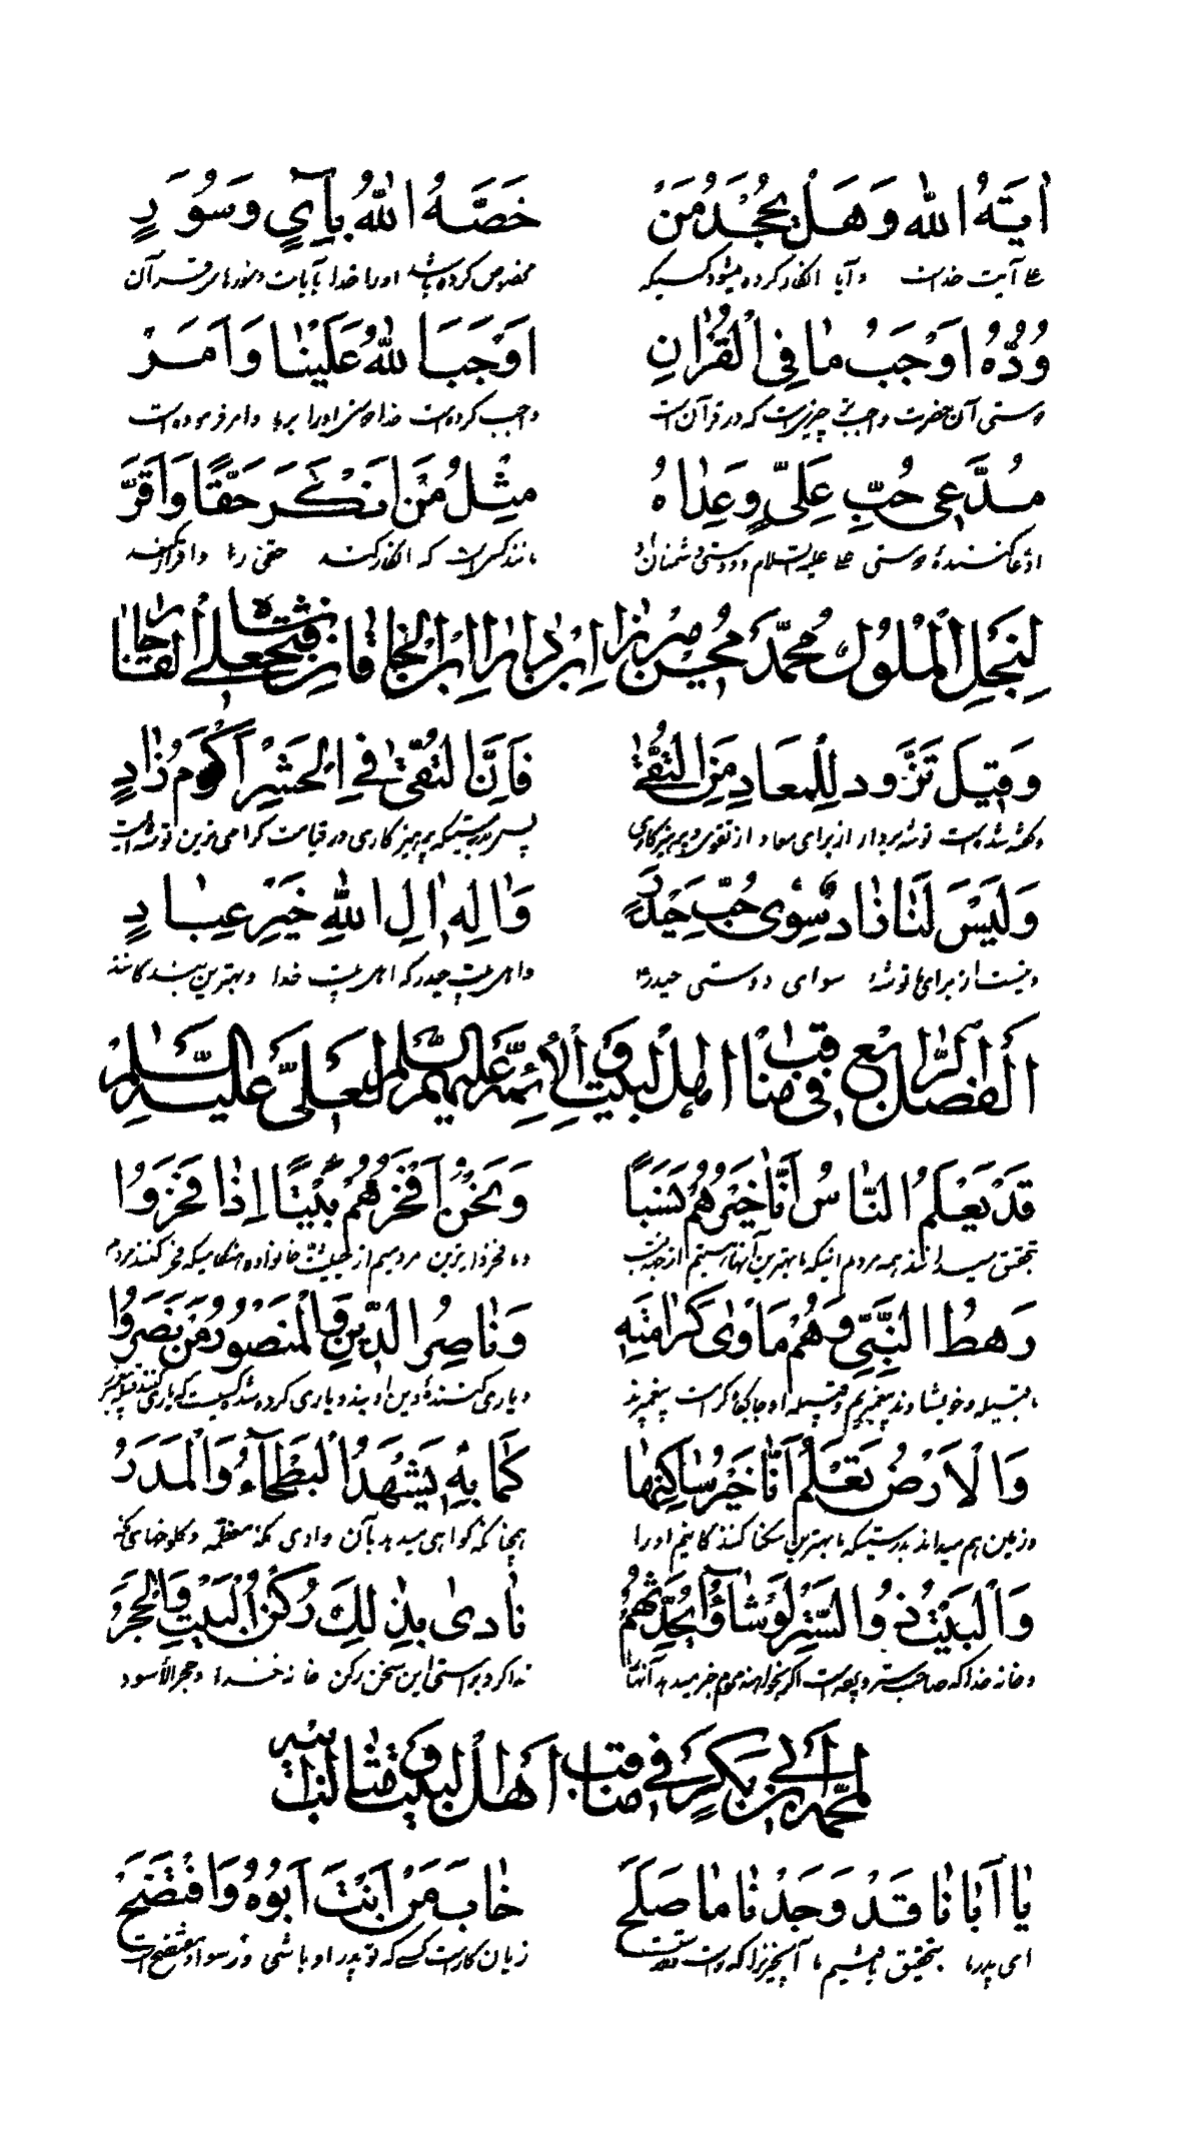 اٰيَةُ اللهِ وَهَلْ يُجْحَدُ مَنْ خَصَّهُ اللهُ بِآيٍ وَسُوَرٍ
علی آیت خداست وآیا انکار کرده میشود کسیکه مخصوص کرده باشد اورا خدا بآیات وسورهای قرآن
وُدُّهُ اَوْجَبُ مٰا فِي الْقُرْاٰنِ اَوْجَبَ اللهُ عَلَيْنٰا وَاَمَرْ
دوستی آن حضرت واجب‌تر چیزیست که در قرآن است واجب کرده است خدا دوستی اورا برما وامر فرموده است
مُدَّعِي حُبِّ عَلِيٍّ وَعِدٰاهُ مِثْلُ مَنْ اَنْكَرَ حَقًّا وَاَقَرَّ
ادعا کنندهٔ دوستی علی علیه السلام ودوستی دشمنان او مانند کسی است که انکار کند حقی را واقرار کند
لِنَجْلِ الْمُلُوكِ مُحَمَّدْ مُحْسِنْ مِيرْزٰا ابْنِ دٰارٰا ابْنِ الْخٰاقٰانِ فَتْحْعَلِي شٰاه الْقٰاجٰار
وَقِيلَ تَزَوَّدْ لِلْمَعٰادِ مِنَ التُّقىٰ فَاِنَّ التُّقىٰ فِي الْحَشْرِ اَكْرَمُ زٰادٍ
وگفته شده است توشه بردار از برای معاد از تقوی وپرهیزکاری پس بدرستیکه پرهیزکاری در قیامت گرامی ترین توشه است
وَلَيْسَ لَنٰا زٰادٌ سِوٰى حُبِّ حَيْدَرٍ وَاٰلِهِ اٰلِ اللهِ خَيْرِ عِبٰادٍ
ونیست از برای ما توشهٔ سوای دوستی حیدر واهل بیت حیدر که اهل بیت خدا وبهترین بندگانند
اَلْفَضْلُ الرّٰابِعُ فِي مَنٰاقِبِ اَهْلِ الْبَيْتِ وَالْاَئِمَّةِ عَلَيْهِمُ السَّلٰامُ لِعَلِيٍّ عَلَيْهِ السَّلٰامُ
قَدْ يَعْلَمُ النّٰاسُ اَنّٰا خَيْرُهُمْ نَسَبًا وَنَحْنُ اَفْخَرُهُمْ بَيْتًا اِذٰا فَخَرُوا
بتحقیق میدانند همه مردم اینکه ما بهترین آنها هستیم از جهت نسب وما فخردارترین مردمیم از حیثیت خانواده هنگامیکه فخر کنند مردم
رَهْطُ النَّبِيِّ وَهُمْ مَأْوٰى كَرٰامَتِهِ وَنٰاصِرُ الدِّينِ وَالْمَنْصُورُ مَنْ نَصَرُوا
ما قبیله وخویشاوند پیغمبریم وقبیله او جایگاه کرامت پیغمبرند ویاری کنندهٔ دین اویند ویاری کرده شده کسیست که یاری کنند
وَالْاَرْضُ تَعْلَمُ اَنّٰا خَيْرُ سٰاكِنِهٰا كَمٰا بِهِ يَشْهَدُ الْبَطْحٰاءُ وَالْمَدَرُ
وزمین هم میداند بدرستیکه ما بهترین سکنا کنندگانیم اورا چنانکه گواهی میدهد بآن وادی مکهٔ معظمه وکلوخهای مکه
وَالْبَيْتُ ذُو السِّتْرِ لَوْ شٰاؤُا يُحَدِّثُهُمْ نٰادىٰ بِذٰلِكَ رُكْنُ الْبَيْتِ وَالْحَجَرُ
وخانه خدا که صاحب ستر وپرده است اگر بخواهند مردم خبر میدهد آنها را ندا کرد براستی این سخن رکن خانه خدا وحجر الأسود
لِمُحَمَّدِ بْنِ اَبِي بَكْرٍ فِي مَنٰاقِبِ اَهْلِ الْبَيْتِ وَمَثٰالِبِ اَبِيهِ
يٰا اَبٰانٰا قَدْ وَجَدْنٰا مٰا صَلَحْ خٰابَ مَنْ اَنْتَ اَبُوهُ وَافْتَضَحْ
ای پدر ما بتحقیق یافتیم ما آنچیزرا که درست زیان کار است کسی که تو پدر او باشی ورسوا ومفتضح است